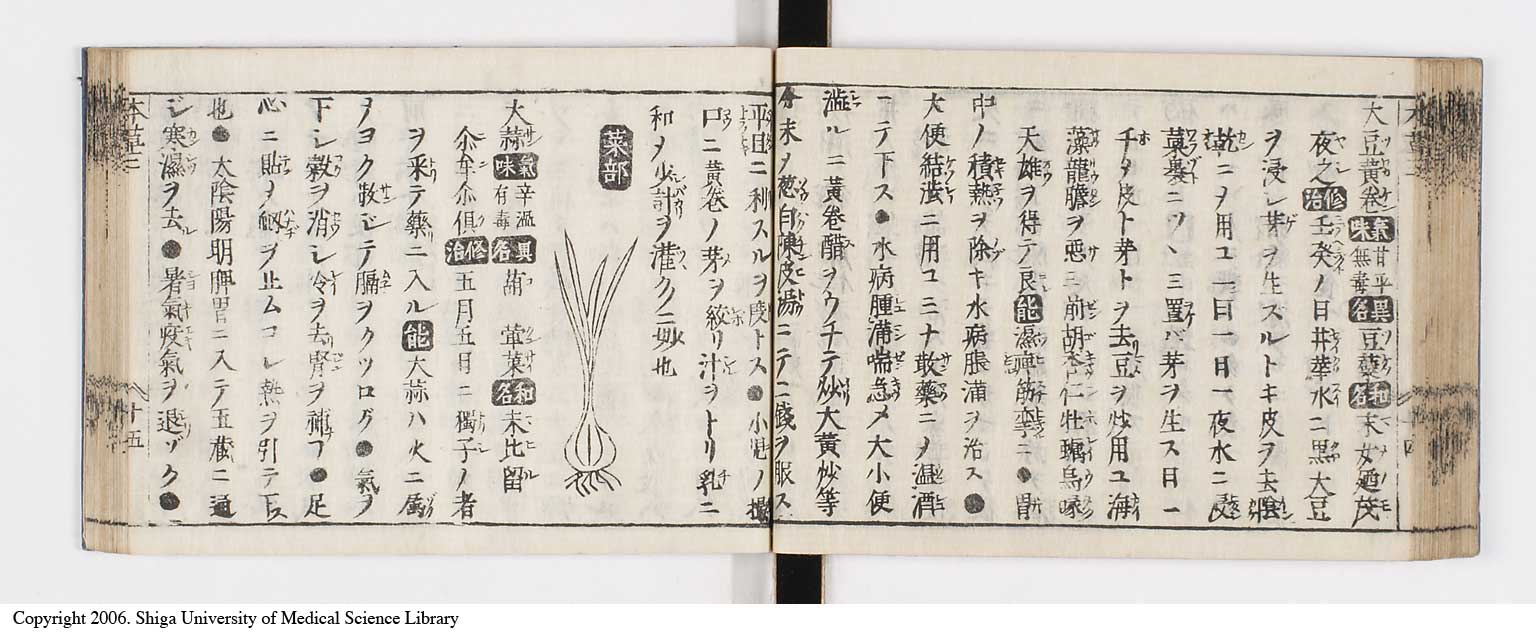 大豆黄巻 氣味 甘平 無毒 異名 豆蘗 和名 末女廼茂
夜之 修治 壬癸ノ日井華水ニ黒大豆
ヲ浸シ芽ヲ生スルトキ皮ヲ去陰
乾ニ用ユ一日一夜水ニ浸
ツヽミ置バ芽ヲ生ス日ニ
皮ト芽トヲ去豆ヲ炒用ユ海
藻龍膽ヲ悪ミ前胡杏仁牡蠣烏喙
天雄ヲ得テ良 能 濕痺筋攣ニ●胃
中ノ積熱ヲ除キ水病脹満ヲ治ス●
大便結澁ニ用ユミナ散藥ニメ温酒
ニテ下ス●水病腫満喘急メ大小便
澁ルニ黄巻醋ヲウチテ炒大黄炒等
分末ヲ葱白陳皮湯ニテ二錢ヲ服ス
平旦ニ利スルヲ度トス●小児ノ撮
口ニ黄巻ノ芽ヲ絞リ汁ヲトリ乳ニ
和メ少計ヲ灌クニ妙也
菜部
大蒜 氣味 辛温 有毒 異名 葫 葷菜 和名 末比留
修治 五月五日ニ獨子ノ者
ヲ采テ藥ニ入ル 能 大蒜ハ火ニ属
ヲヨク散シテ膈ヲクツログ●氣ヲ
下シ穀ヲ消シ冷ヲ去腎ヲ補フ●足
心ニ貼メ衂ヲ止ムコレ熱ヲ引テ下ス
也●太陰陽明脾胃ニ入テ五蔵ニ通
シ寒濕ヲ去ル●暑氣疫氣ヲ退ゾク●
本草三
十五
Copyright 2006. Shiga University of Medical Science Library